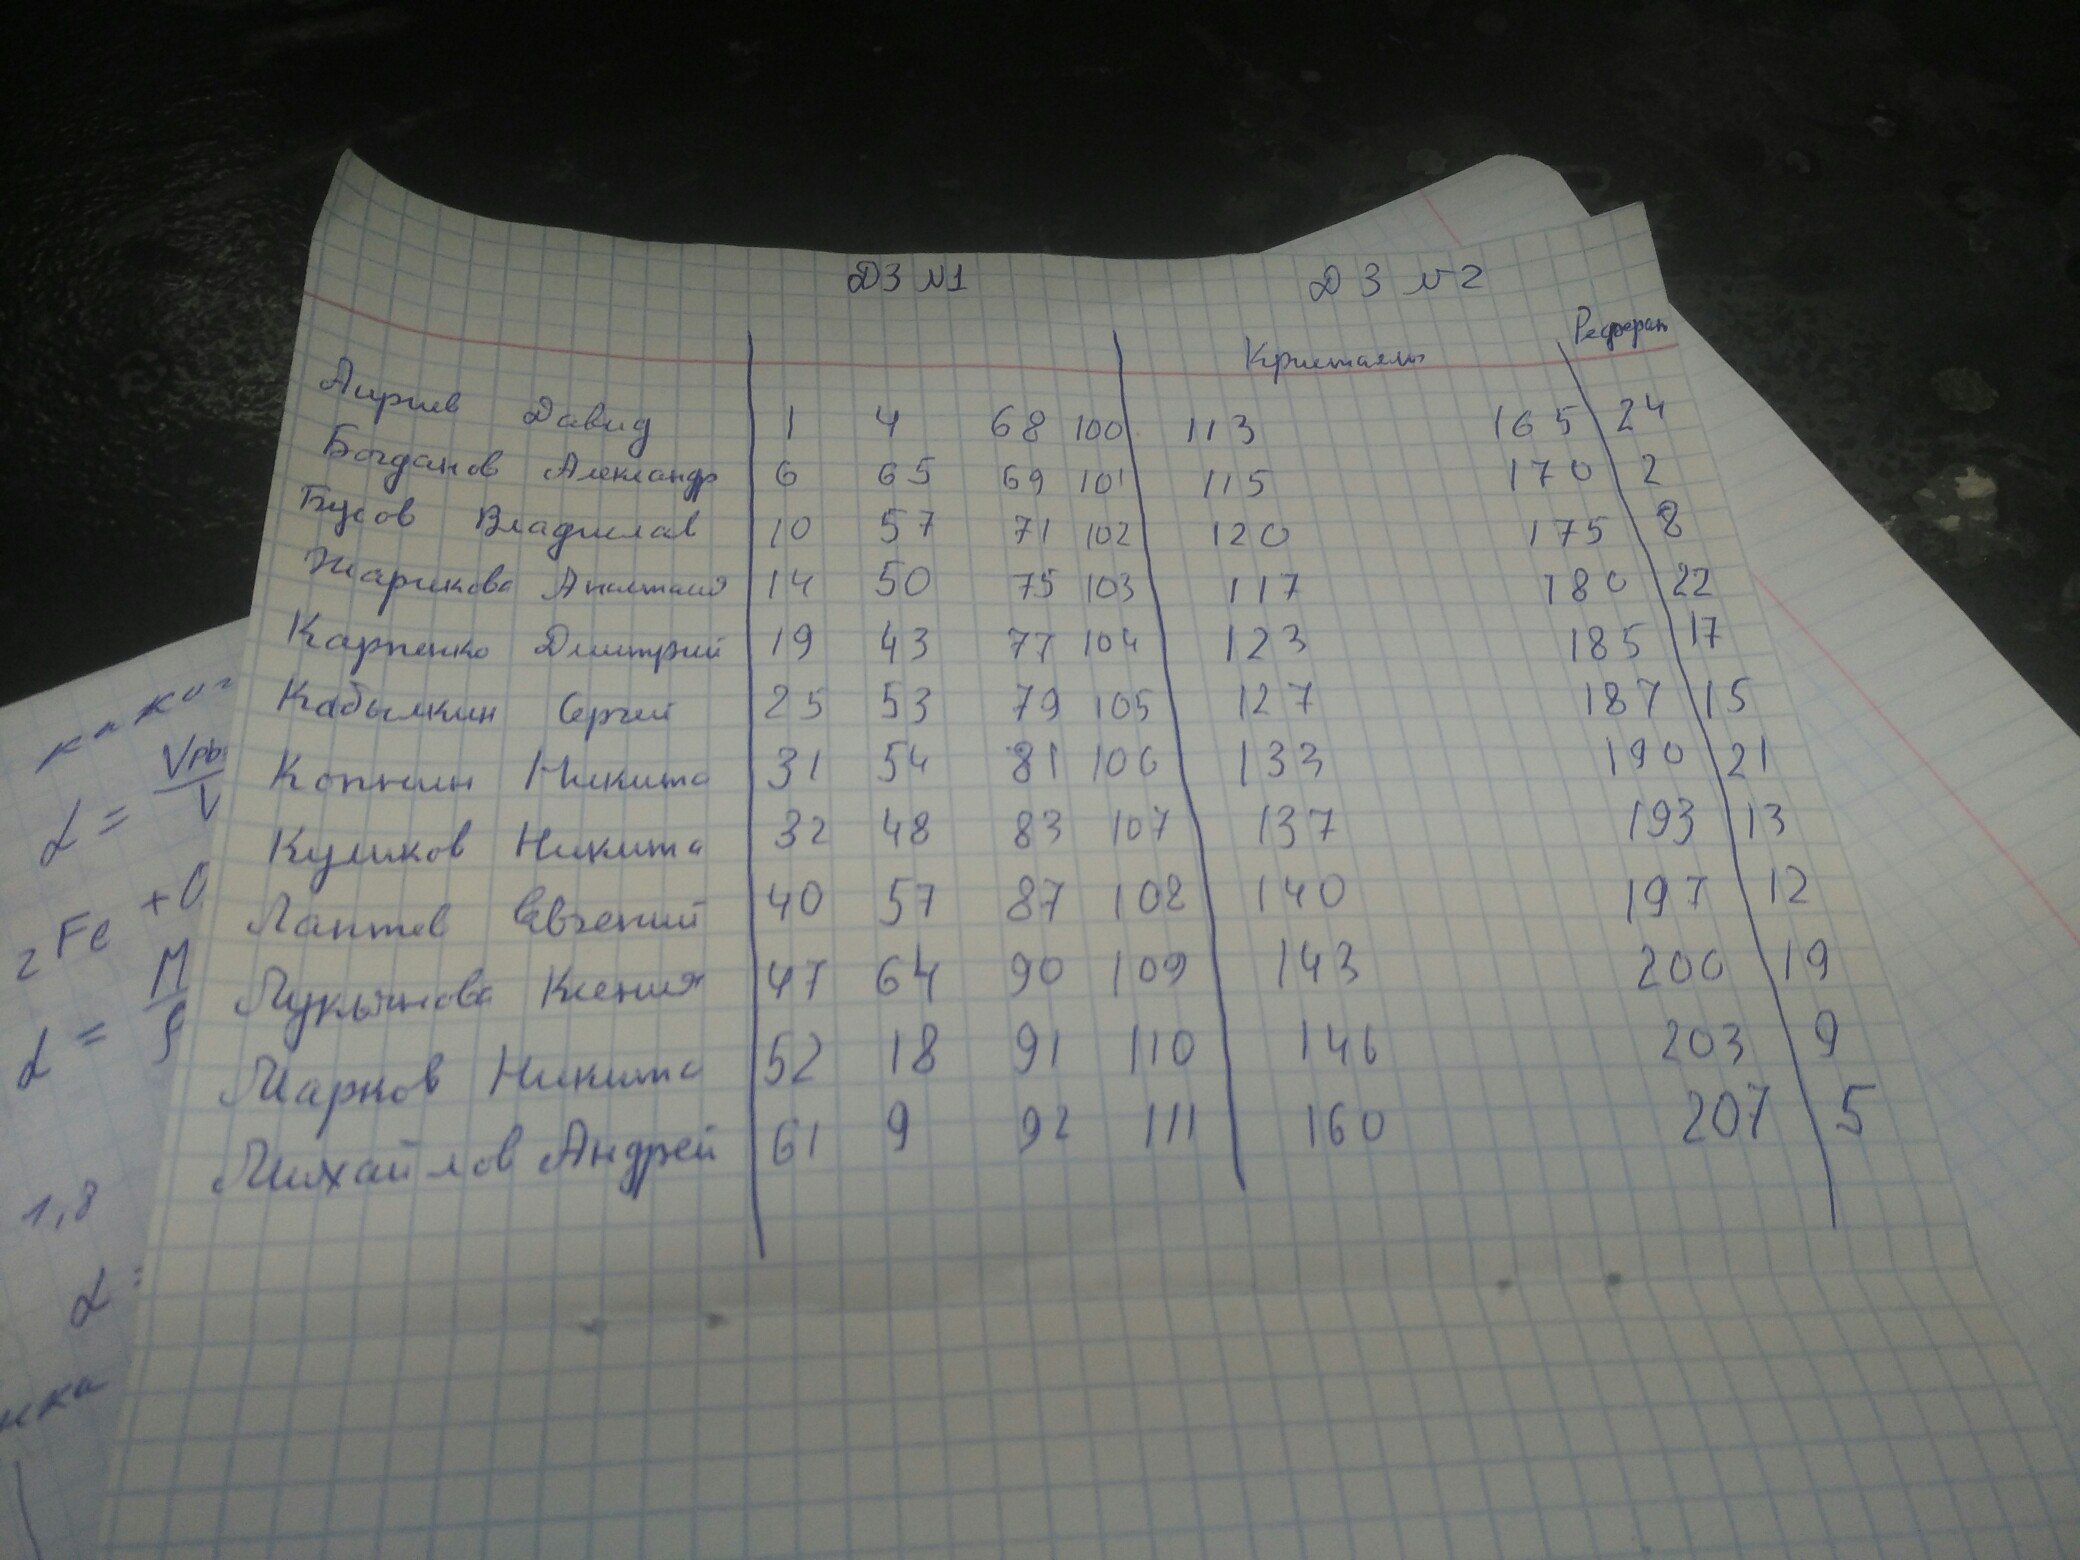 ДЗ №1 ДЗ №2
Кристаллы Реферат
Давид 1 4 68 100 113 165 24
Богданов Александр 6 65 69 101 115 170 2
Бусов Владислав 10 57 71 102 120 175 8
Жарикова Анастасия 14 50 75 103 117 180 22
Карпенко Дмитрий 19 43 77 104 123 185 17
Кобылкин Сергей 25 53 79 105 127 187 15
Копнин Никита 31 54 81 106 133 190 21
Куликов Никита 32 48 83 107 137 193 13
Лаптев Евгений 40 57 87 108 140 197 12
Лукьянова Ксения 47 64 90 109 143 200 19
Марков Никита 52 18 91 110 146 203 9
Михайлов Андрей 61 9 92 111 160 207 5
α =
2Fe + O
α = M
1,8
α =